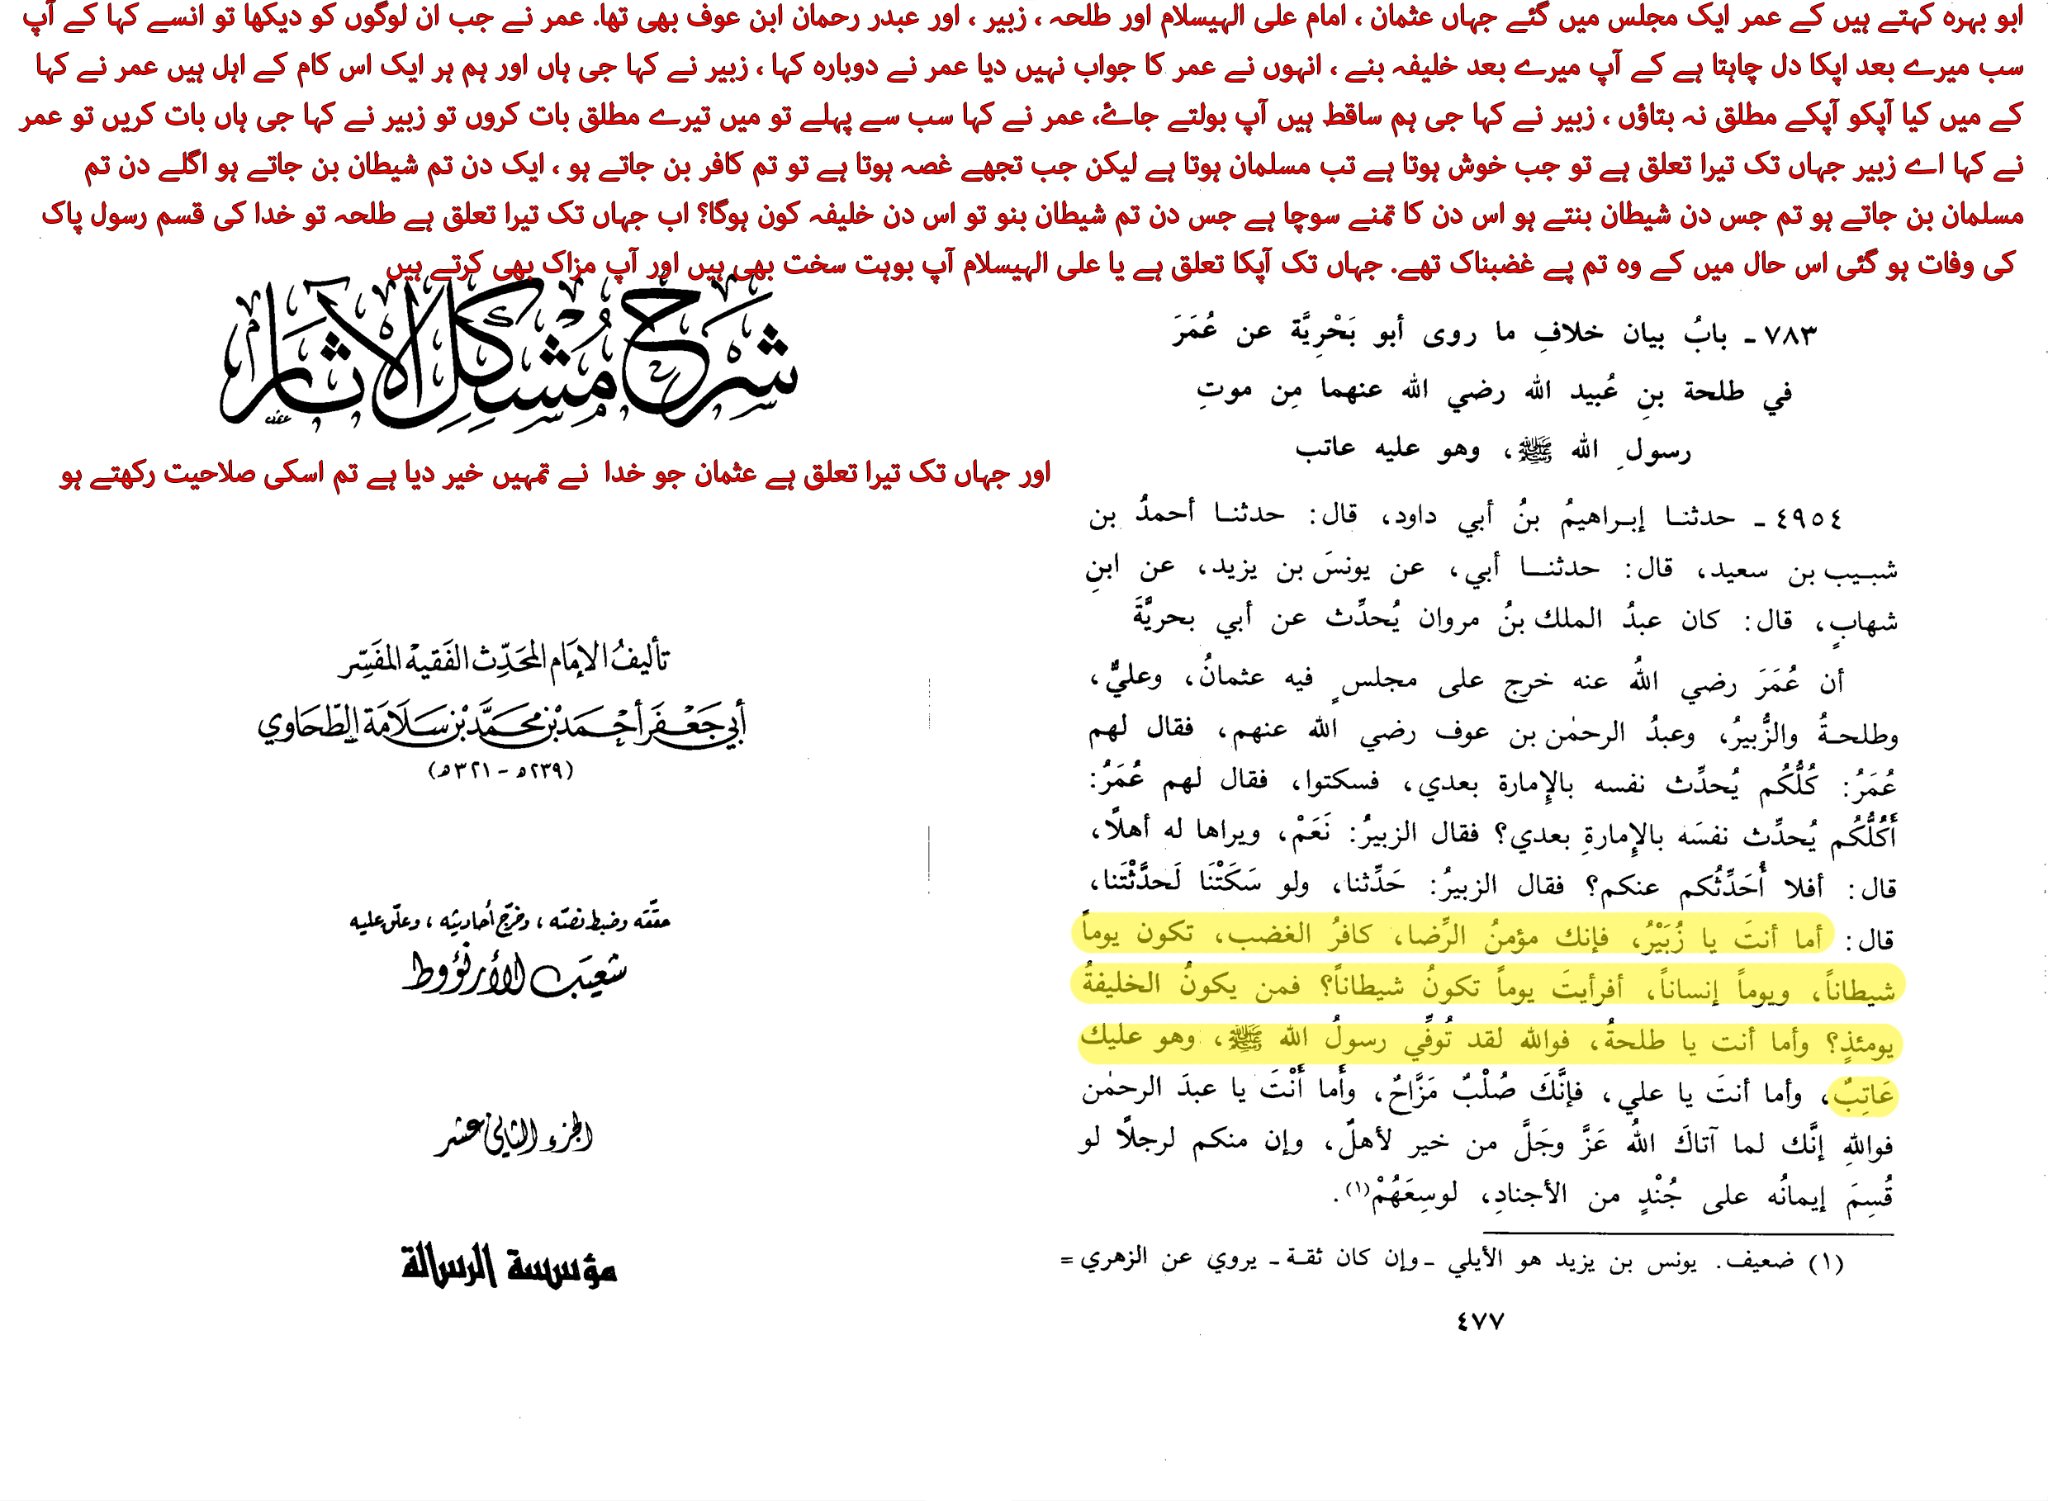 ابو بہرہ کہتے ہیں کے عمر ایک مجلس میں گئے جہاں عثمان ، امام علی الہیسلام اور طلحہ ، زبیر ، اور عبدر رحمان ابن عوف بھی تھا. عمر نے جب ان لوگوں کو دیکھا تو انسے کہا کے آپ
سب میرے بعد اپکا دل چاہتا ہے کے آپ میرے بعد خلیفہ بنے ، انہوں نے عمر کا جواب نہیں دیا عمر نے دوبارہ کہا ، زبیر نے کہا جی ہاں اور ہم ہر ایک اس کام کے اہل ہیں عمر نے کہا
کے میں کیا آپکو آپکے مطلق نہ بتاؤں ، زبیر نے کہا جی ہم ساقط ہیں آپ بولتے جائے، عمر نے کہا سب سے پہلے تو میں تیرے مطلق بات کروں تو زبیر نے کہا جی ہاں بات کریں تو عمر
نے کہا اے زبیر جہاں تک تیرا تعلق ہے تو جب خوش ہوتا ہے تب مسلمان ہوتا ہے لیکن جب تجھے غصہ ہوتا ہے تو تم کافر بن جاتے ہو ، ایک دن تم شیطان بن جاتے ہو اگلے دن تم
مسلمان بن جاتے ہو تم جس دن شیطان بنتے ہو اس دن کا تمنے سوچا ہے جس دن تم شیطان بنو تو اس دن خلیفہ کون ہوگا؟ اب جہاں تک تیرا تعلق ہے طلحہ تو خدا کی قسم رسول پاک
کی وفات ہو گئی اس حال میں کے وہ تم پے غضبناک تھے. جہاں تک آپکا تعلق ہے یا علی الہیسلام آپ بوہت سخت بھی ہیں اور آپ مزاک بھی کرتے ہیں
٧٨٣ ـ بابُ بيان خلافِ ما روى أبو بَحْرِيَّة عن عُمَرَ
في طلحة بنِ عُبيد الله رضي الله عنهما مِن موتِ
رسولِ الله ﷺ، وهو عليه عاتب
٤٩٥٤ ـ حدثنا إبراهيمُ بنُ أبي داود، قال: حدثنا أحمدُ بن
شبيب بن سعيد، قال: حدثنا أبي، عن يونسَ بن يزيد، عن ابنِ
شهابٍ، قال: كان عبدُ الملك بنُ مروان يُحدِّث عن أبي بحريَّةَ
أن عُمَرَ رضي اللهُ عنه خرج على مجلسٍ فيه عثمانُ، وعليٌّ،
وطلحةُ والزُّبيرُ، وعبدُ الرحمٰن بن عوف رضي الله عنهم، فقال لهم
عُمَرُ: كُلُّكُم يُحدِّث نفسه بالإمارة بعدي، فسكتوا، فقال لهم عُمَرُ:
أَكُلُّكُم يُحدِّث نفسَه بالإمارةِ بعدي؟ فقال الزبيرُ: نَعَمْ، ويراها له أهلًا،
قال: أفلا أُحَدِّثُكم عنكم؟ فقال الزبيرُ: حَدِّثنا، ولو سَكَتْنَا لَحدَّثْتَنا،
قال: أما أنتَ يا زُبَيْرُ، فإنك مؤمنُ الرِّضا، كافرُ الغضب، تكون يوماً
شيطاناً، ويوماً إنساناً، أفرأيتَ يوماً تكونُ شيطاناً؟ فمن يكونُ الخليفةُ
يومئذٍ؟ وأما أنت يا طلحةُ، فوالله لقد تُوفِّي رسولُ الله ﷺ، وهو عليك
عَاتِبٌ، وأما أنتَ يا علي، فإنَّكَ صُلْبٌ مَزَّاحٌ، وأَما أَنْتَ يا عبدَ الرحمٰن
فواللهِ إنَّك لما آتاكَ اللهُ عَزَّ وجَلَّ من خير لأهلٌ، وإن منكم لرجلًا لو
قُسِمَ إيمانُه على جُنْدٍ من الأجنادِ، لوسِعَهُمْ(١).
(١) ضعيف. يونس بن يزيد هو الأيلي ـ وإن كان ثقة ـ يروي عن الزهري =
٤٧٧
شرح مشكل الآثار
اور جہاں تک تیرا تعلق ہے عثمان جو خدا نے تمہیں خیر دیا ہے تم اسکی صلاحیت رکھتے ہو
تأليفُ الإمَام المحَدِّث الفَقيه المفَسِّر
أبي جَعْفَر أحْمَد بْن محَمَّد بْن سَلَامَة الطّحَاوي
(٢٣٩هـ - ٣٢١هـ)
حقّقه وضبط نصّه ، وخرّج أحاديثه ، وعلّق عليه
شعَيب الأرنؤوط
الجزء الثاني عشر
مؤسسة الرسالة